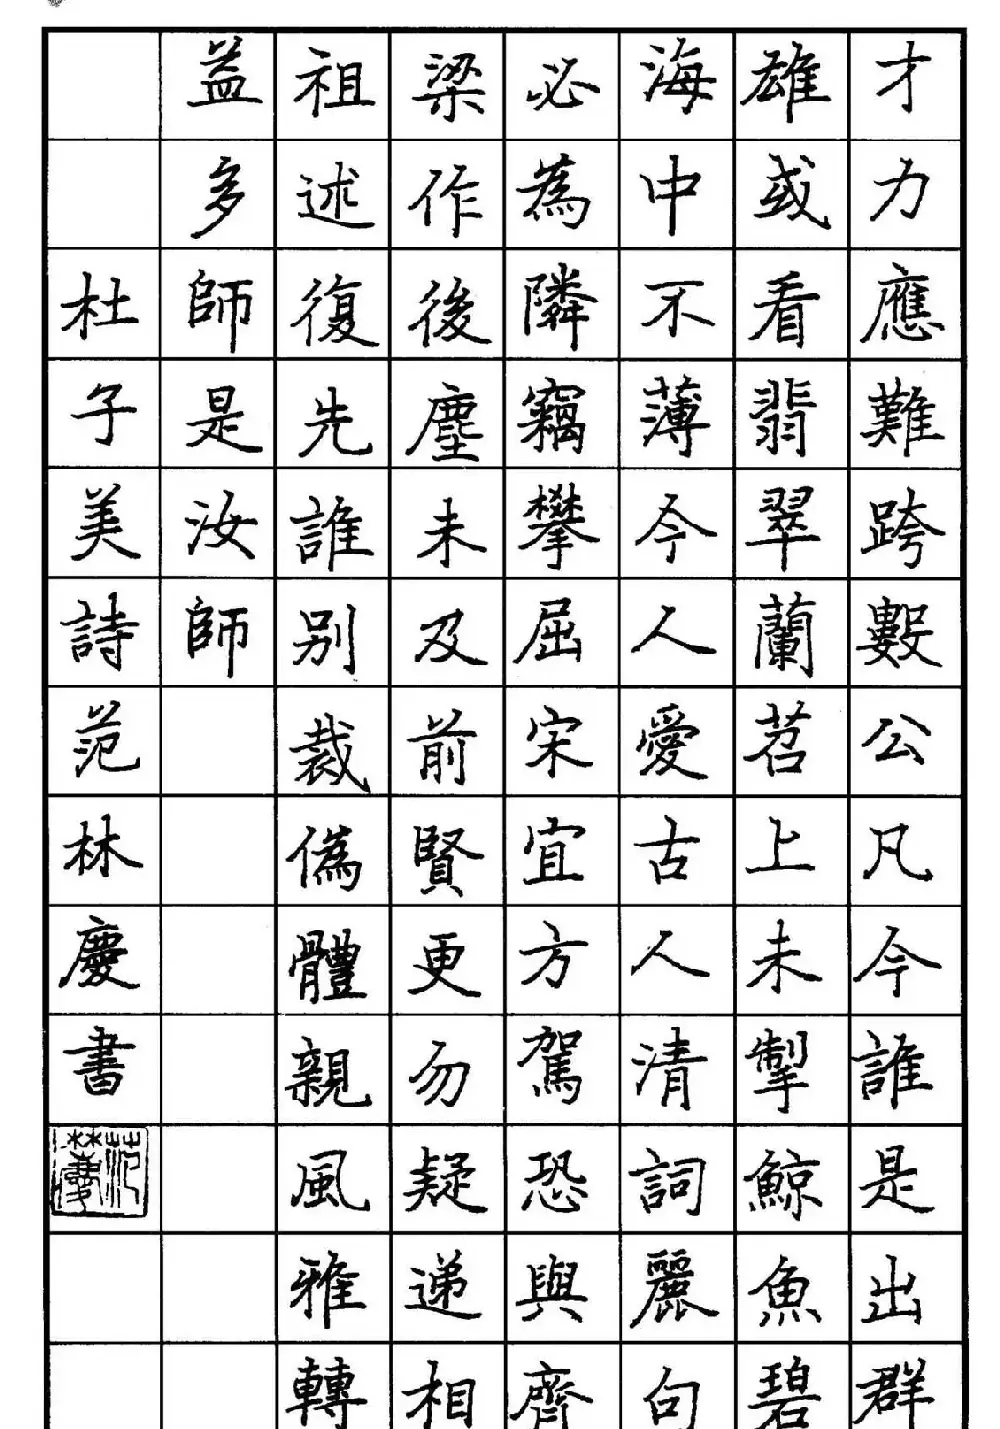 才力應難跨數公凡今誰是出群
雄或看翡翠蘭苕上未掣鯨魚碧
海中不薄今人愛古人清詞麗句
必為隣竊攀屈宋宜方駕恐與齊
梁作後塵未及前賢更勿疑遞相
祖述復先誰别裁偽體親風雅轉
益多師是汝師
杜子美詩范林慶書
范林慶